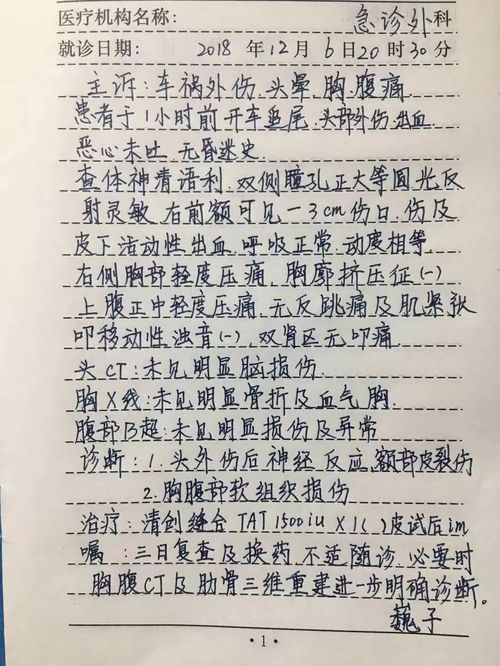 医疗机构名称： 急诊外科
就诊日期： 2018 年 12 月 6 日 20 时 30 分
主诉：车祸外伤、头晕、胸、腹痛
患者于1小时前开车追尾，头部外伤、出血
恶心未吐，无昏迷史
查体神清语利，双侧瞳孔正大等圆光反
射灵敏，右前额可见一3cm伤口，伤及
皮下活动性出血，呼吸正常，动度相等，
右侧胸部轻度压痛，胸廓挤压征(-)
上腹正中轻度压痛，无反跳痛及肌紧张
叩移动性浊音(-)，双肾区无叩痛
头CT：未见明显脑损伤
胸X线：未见明显骨折及血气胸
腹部B超：未见明显损伤及异常
诊断：1.头外伤后神经反应，额部皮裂伤
2.胸腹部软组织损伤
治疗：清创缝合 TAT 1500iu X1( )皮试后im
嘱：三日复查及换药，不适随诊，必要时
胸腹CT及肋骨三维重建进一步明确诊断。
巍子
·1·